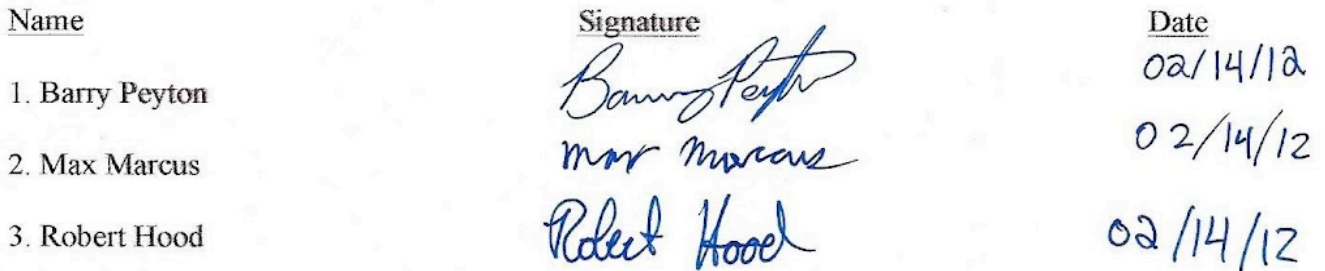 Name Signature Date
1. Barry Peyton Barry Peyton 02/14/12
2. Max Marcus Max Marcus 02/14/12
3. Robert Hood Robert Hood 02/14/12